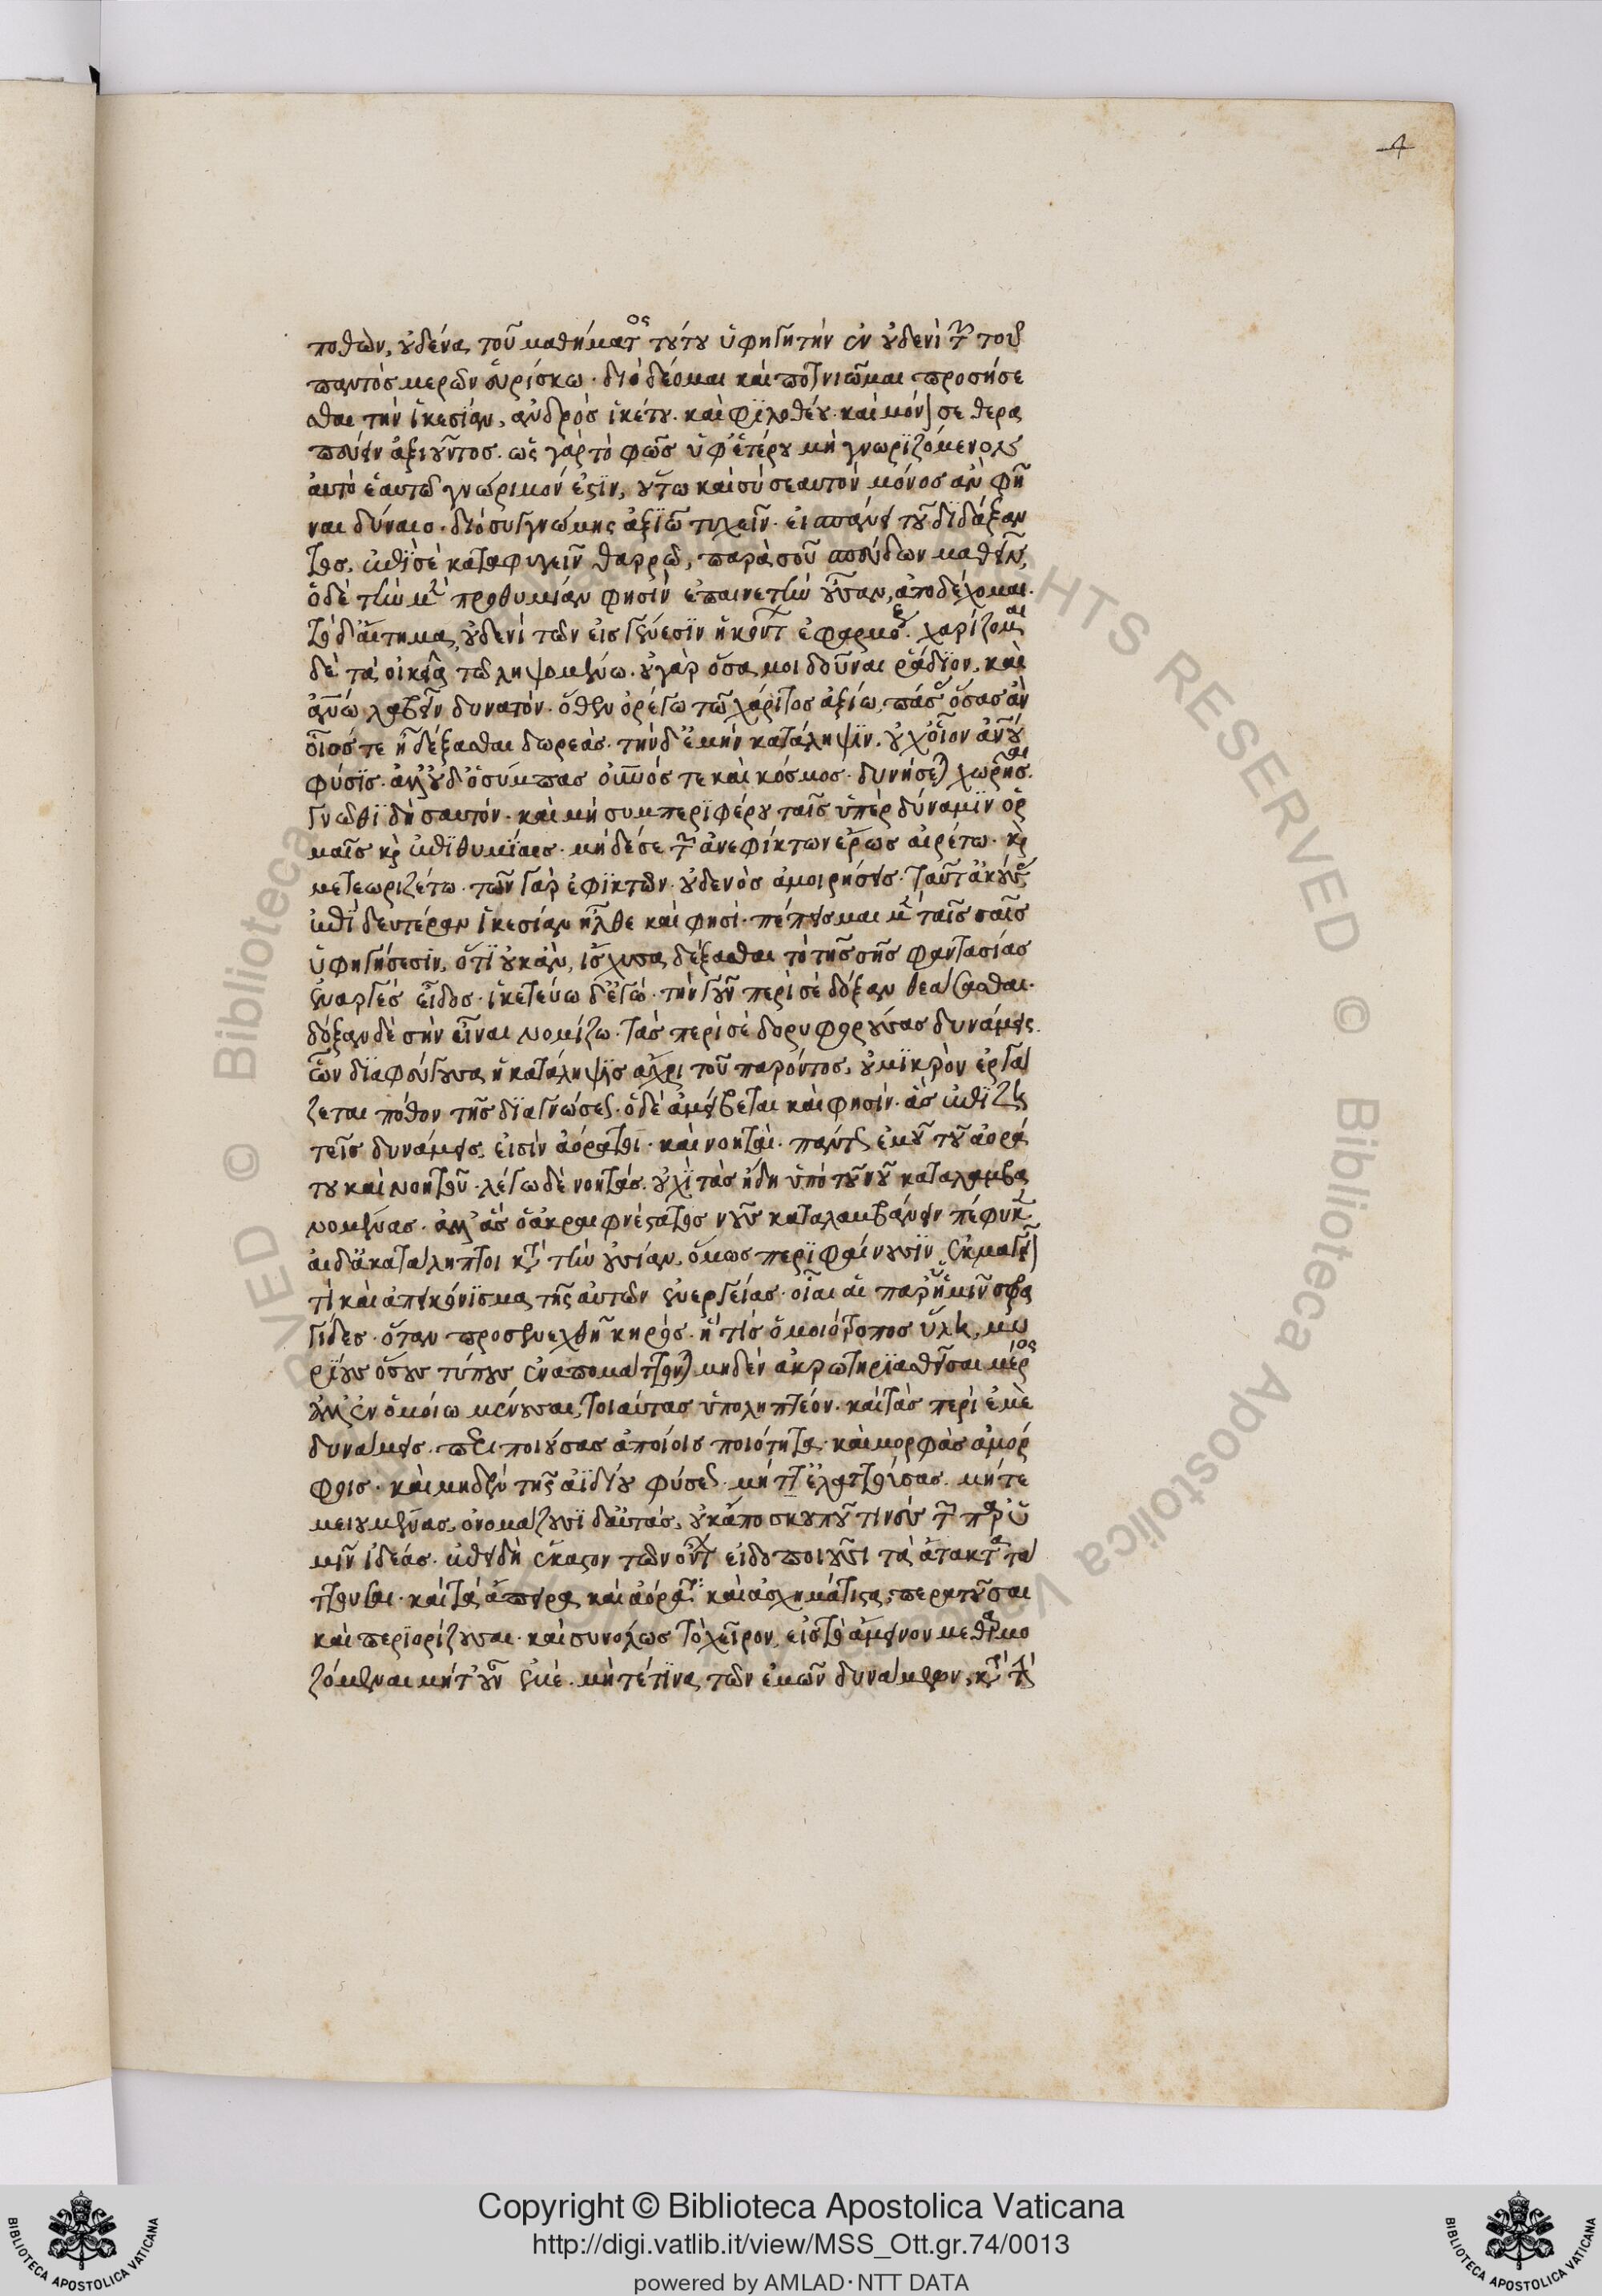 4
ποθῶν, οὐδένα τοῦ μαθήματος τούτου ὑφηγητὴν ἐν οὐδενὶ τῶν τοῦ
παντὸς μερῶν εὑρίσκω. διὸ δέομαι καὶ ποτνιῶμαι προσήσε
σθαι τὴν ἱκεσίαν, ἀνδρὸς ἱκέτου. καὶ φιλοθέου. καὶ μόνον σε θερα
πεύειν ἀξιοῦντος. ὡς γὰρ τὸ φῶς ὑφ' ἑτέρου μὴ γνωριζόμενον
αὐτὸ ἑαυτῷ γνώριμόν ἐστιν, οὕτω καὶ σὺ σεαυτὸν μόνος ἂν φῆ
ναι δύναιο. διὸ συγνώμης ἀξιῶ τυχεῖν. εἰ ἀπορίᾳ τοῦ διδάξαν
τος, ἐπὶ σὲ καταφυγεῖν θαρρῶ, παρὰ σοῦ σπεύδων μαθεῖν,
ὁ δὲ τὴν μὲν προθυμίαν φησὶν ἐπαινετὴν οὖσαν, ἀποδέχομαι.
τὸ δ' αἴτημα, οὐδενὶ τῶν εἰς γένεσιν ἡκόντων ἐφαρμόζει. χαρίζομαι
δὲ τὰ οἰκεῖα τῷ ληψομένῳ. οὐ γὰρ ὅσα μοι δοῦναι ῥάδιον, καὶ
ἀνθρώπῳ λαβεῖν δυνατόν. ὅθεν ὀρέγω τῷ χάριτος ἀξίῳ, πάσας ὅσας ἂν
οἷός τε ᾖ δέξασθαι δωρεάς. τὴν δ' ἐμὴν κατάληψιν. οὐχ οἷον ἀνθρώπου
φύσις. ἀλλ' οὐδ' ὁ σύμπας οὐρανός τε καὶ κόσμος. δυνήσεται χωρῆσαι.
γνῶθι δὴ σαυτόν. καὶ μὴ συμπεριφέρου ταῖς ὑπὲρ δύναμιν ὁρ
μαῖς καὶ ἐπιθυμίαις. μηδέ σε τῶν ἀνεφίκτων ἔρως αἰρέτω. καὶ
μετεωριζέτω. τῶν γὰρ ἐφικτῶν. οὐδενὸς ἀμοιρήσεις. ταῦτ' ἀκούσας
ἐπὶ δευτέραν ἱκεσίαν ἦλθε καὶ φησί. πέπεισμαι μὲν ταῖς σαῖς
ὑφηγήσεσιν, ὅτι οὐκ ἂν, ἴσχυσα δέξασθαι τὸ τῆς σῆς φαντασίας
ἐναργὲς εἶδος. ἱκετεύω δ' ἐγώ. τὴν γοῦν περὶ σὲ δόξαν θεάσασθαι.
δόξαν δὲ σὴν εἶναι νομίζω. τὰς περὶ σὲ δορυφορούσας δυνάμεις.
ὧν διαφεύγουσα ἡ κατάληψις ἄχρι τοῦ παρόντος, οὐ μικρὸν ἐργά
ζεται πόθον τῆς διαγνώσεως. ὁ δὲ ἀμείβεται καὶ φησίν. ἃς ἐπιζη
τεῖς δυνάμεις, εἰσὶν ἀόρατοι. καὶ νοηταὶ. πάντως ἐμοῦ τοῦ ἀορά
του καὶ νοητοῦ. λέγω δὲ νοητάς. οὐχὶ τὰς ἤδη ὑπὸ τοῦ νοῦ καταλαμβα
νομένας. ἀλλ' ἃς ὁ ἀκραιφνέστατος νοῦς καταλαμβάνειν πέφυκεν
αἱ δ' ἀκατάληπτοι κατὰ τὴν οὐσίαν, ὅμως περιφαίνουσιν ἐκμαγεῖον
τὶ καὶ ἀπεικόνισμα τῆς αὐτῶν ἐνεργείας. οἷαι αἱ παρ' ἡμῖν σφρα
γίδες. ὅταν προσενεχθῇ κηρός. ἤ τις ὁμοιότροπος ὕλη, μυ
ρίους ὅσους τύπους ἐναπομάττονται μηδὲν ἀκρωτηριασθεῖσαι μέρος
ἀλλ' ἐν ὁμοίῳ μένουσαι, τοιαύτας ὑποληπτέον. καὶ τὰς περὶ ἐμὲ
δυνάμεις. περιποιούσας ἀποίοις ποιότητα. καὶ μορφὰς ἀμόρ
φοις. καὶ μηδὲν τῆς ἀϊδίου φύσεως. μήτ' ἐλαττούσας. μήτε
μειουμένας, ὀνομάζουσι δ' αὐτὰς, οὐκ ἀπὸ σκοποῦ τινὲς τῶν παρ' ὑ
μῖν ἰδέας. ἐπειδὴ ἕκαστον τῶν ὄντων εἰδοποιοῦσι τὰ ἄτακτα τά
ττουσαι. καὶ τὰ ἄπειρα καὶ ἀόριστα καὶ ἀσχημάτιστα, περατοῦσαι
καὶ περιορίζουσαι. καὶ συνόλως τὸ χεῖρον, εἰς τὸ ἄμεινον μεθαρμο
ζόμεναι μήτ' οὖν ἐμὲ. μήτέ τινα τῶν ἐμῶν δυνάμεων, κατὰ τὴν
Copyright © Biblioteca Apostolica Vaticana
http://digi.vatlib.it/view/MSS_Ott.gr.74/0013
powered by AMLAD·NTT DATA